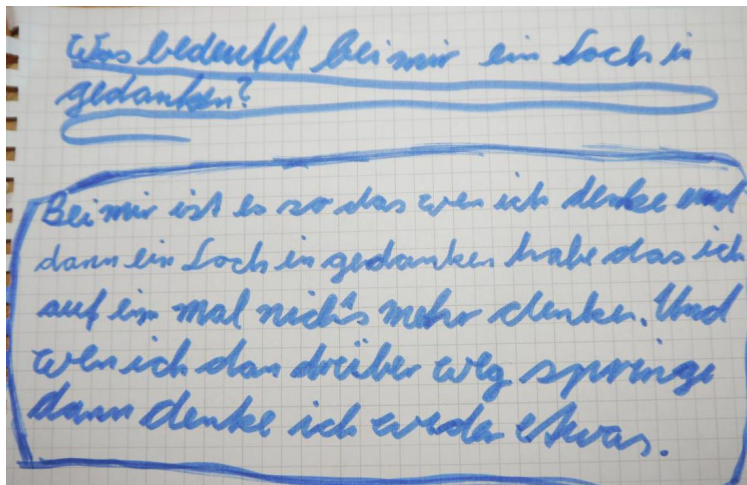 Was bedeutet bei mir ein Loch in
gedanken?
Bei mir ist es so das wen ich denke und
dann ein Loch in gedanken habe das ich
auf ein mal nichts mehr denke. Und
wen ich dan drüber weg springe
dann denke ich wieder etwas.